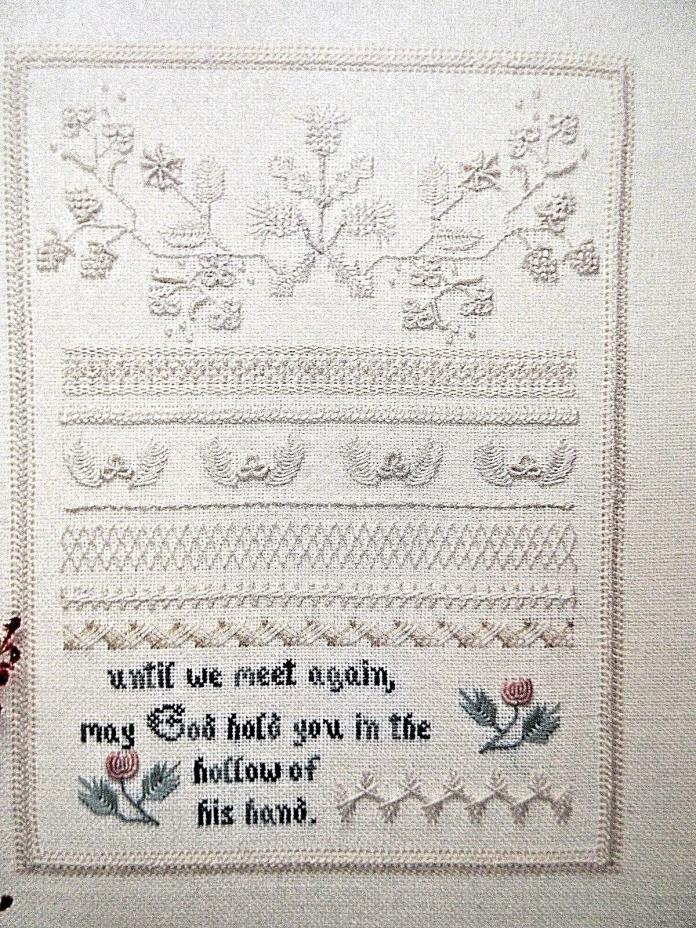 until we meet again,
may God hold you in the
hollow of
his hand.